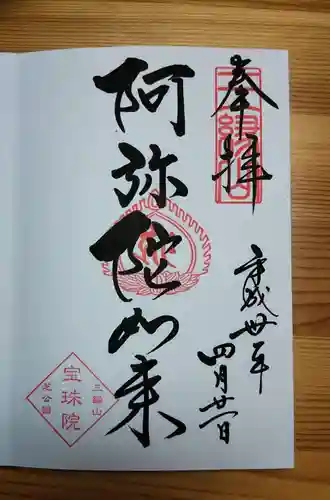 奉拝
平成丗一年
四月廿一日
阿弥陀如来
三縁山
宝珠院
芝公園